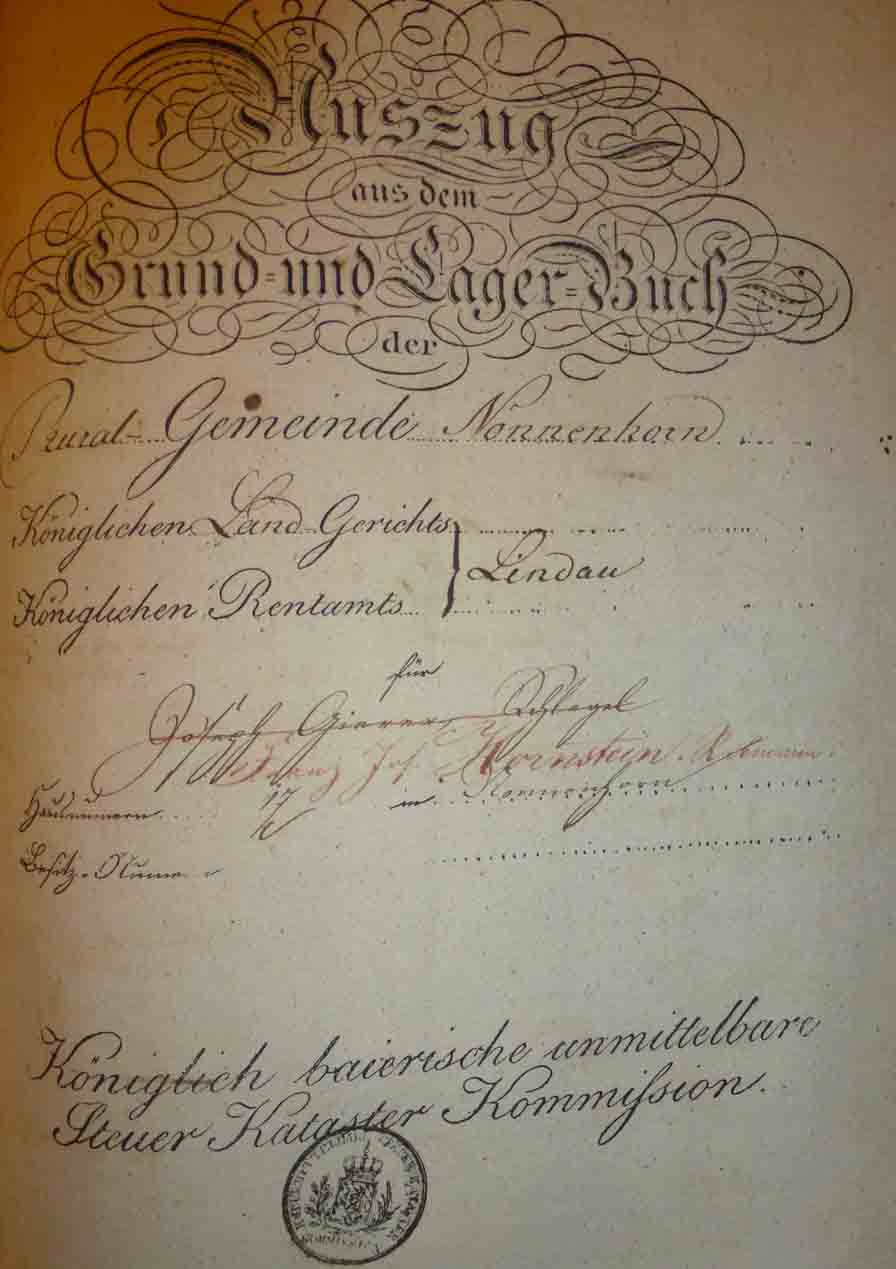 Auszug
aus dem
Grund= und Lager=Buch
der
Rural-Gemeinde Nonnenhorn
Königlichen Land-Gerichts
Lindau
Königlichen Rentamts
für
Joseph Gierer Schlegel
Franz Jos. Hornstein. Rebmann
Hausnummern 17 in Nonnenhorn
Besitz-Nume
Königlich baierische unmittelbare
Steuer Kataster Kommißion.